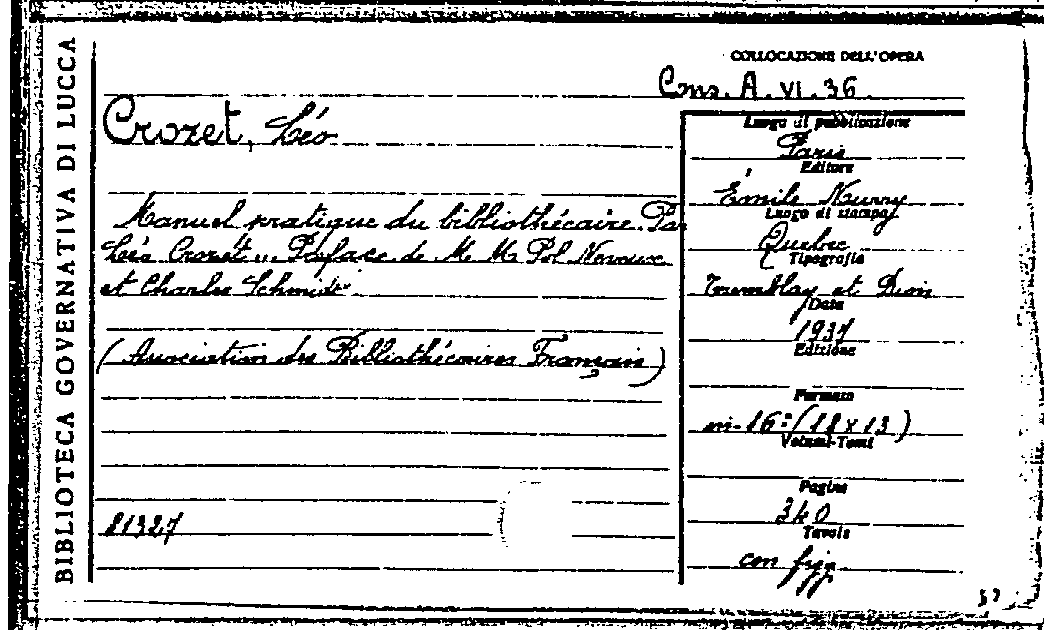 BIBLIOTECA GOVERNATIVA DI LUCCA
COLLOCAZIONE DELL'OPERA
Cons. A. VI. 36.
Crozet, Léo
Manuel pratique du bibliothécaire. Par
Léo Crozet... Préface de M. M. Pol Neveux
et Charles Schmidt
(Association des Bibliothécaires Français)
81327
Luogo di pubblicazione
Paris
Editore
Émile Nourry
Luogo di stampa
Quebec
Tipografia
Tremblay et Dion
Data
1937
Edizione
Formato
in-16° (18x13)
Volumi-Tomi
Pagine
340
Tavole
con figg